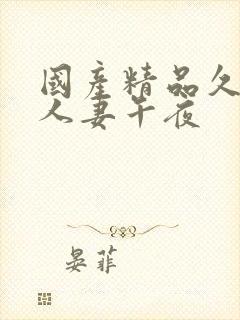 國產精品久
人妻午夜
晏菲